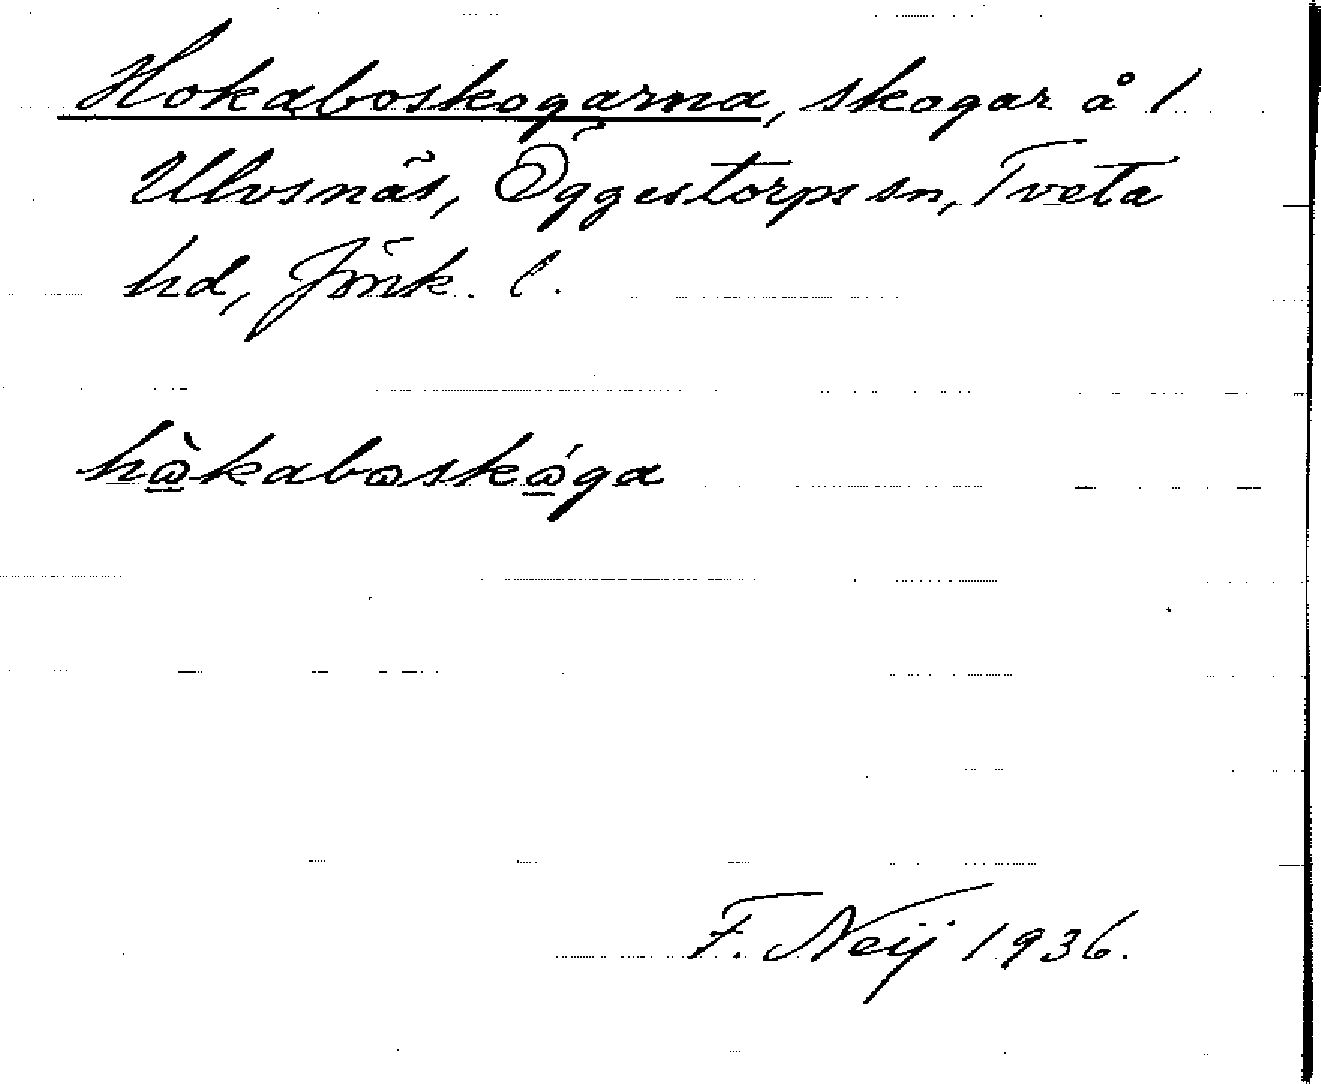 Hokaboskogarna, skogar å 1
Ulvsnäs, Öggestorps sn, Tveta
hd, Jönk. l.
hὼ̲kabωskώ̲ga
F. Neij 1936.